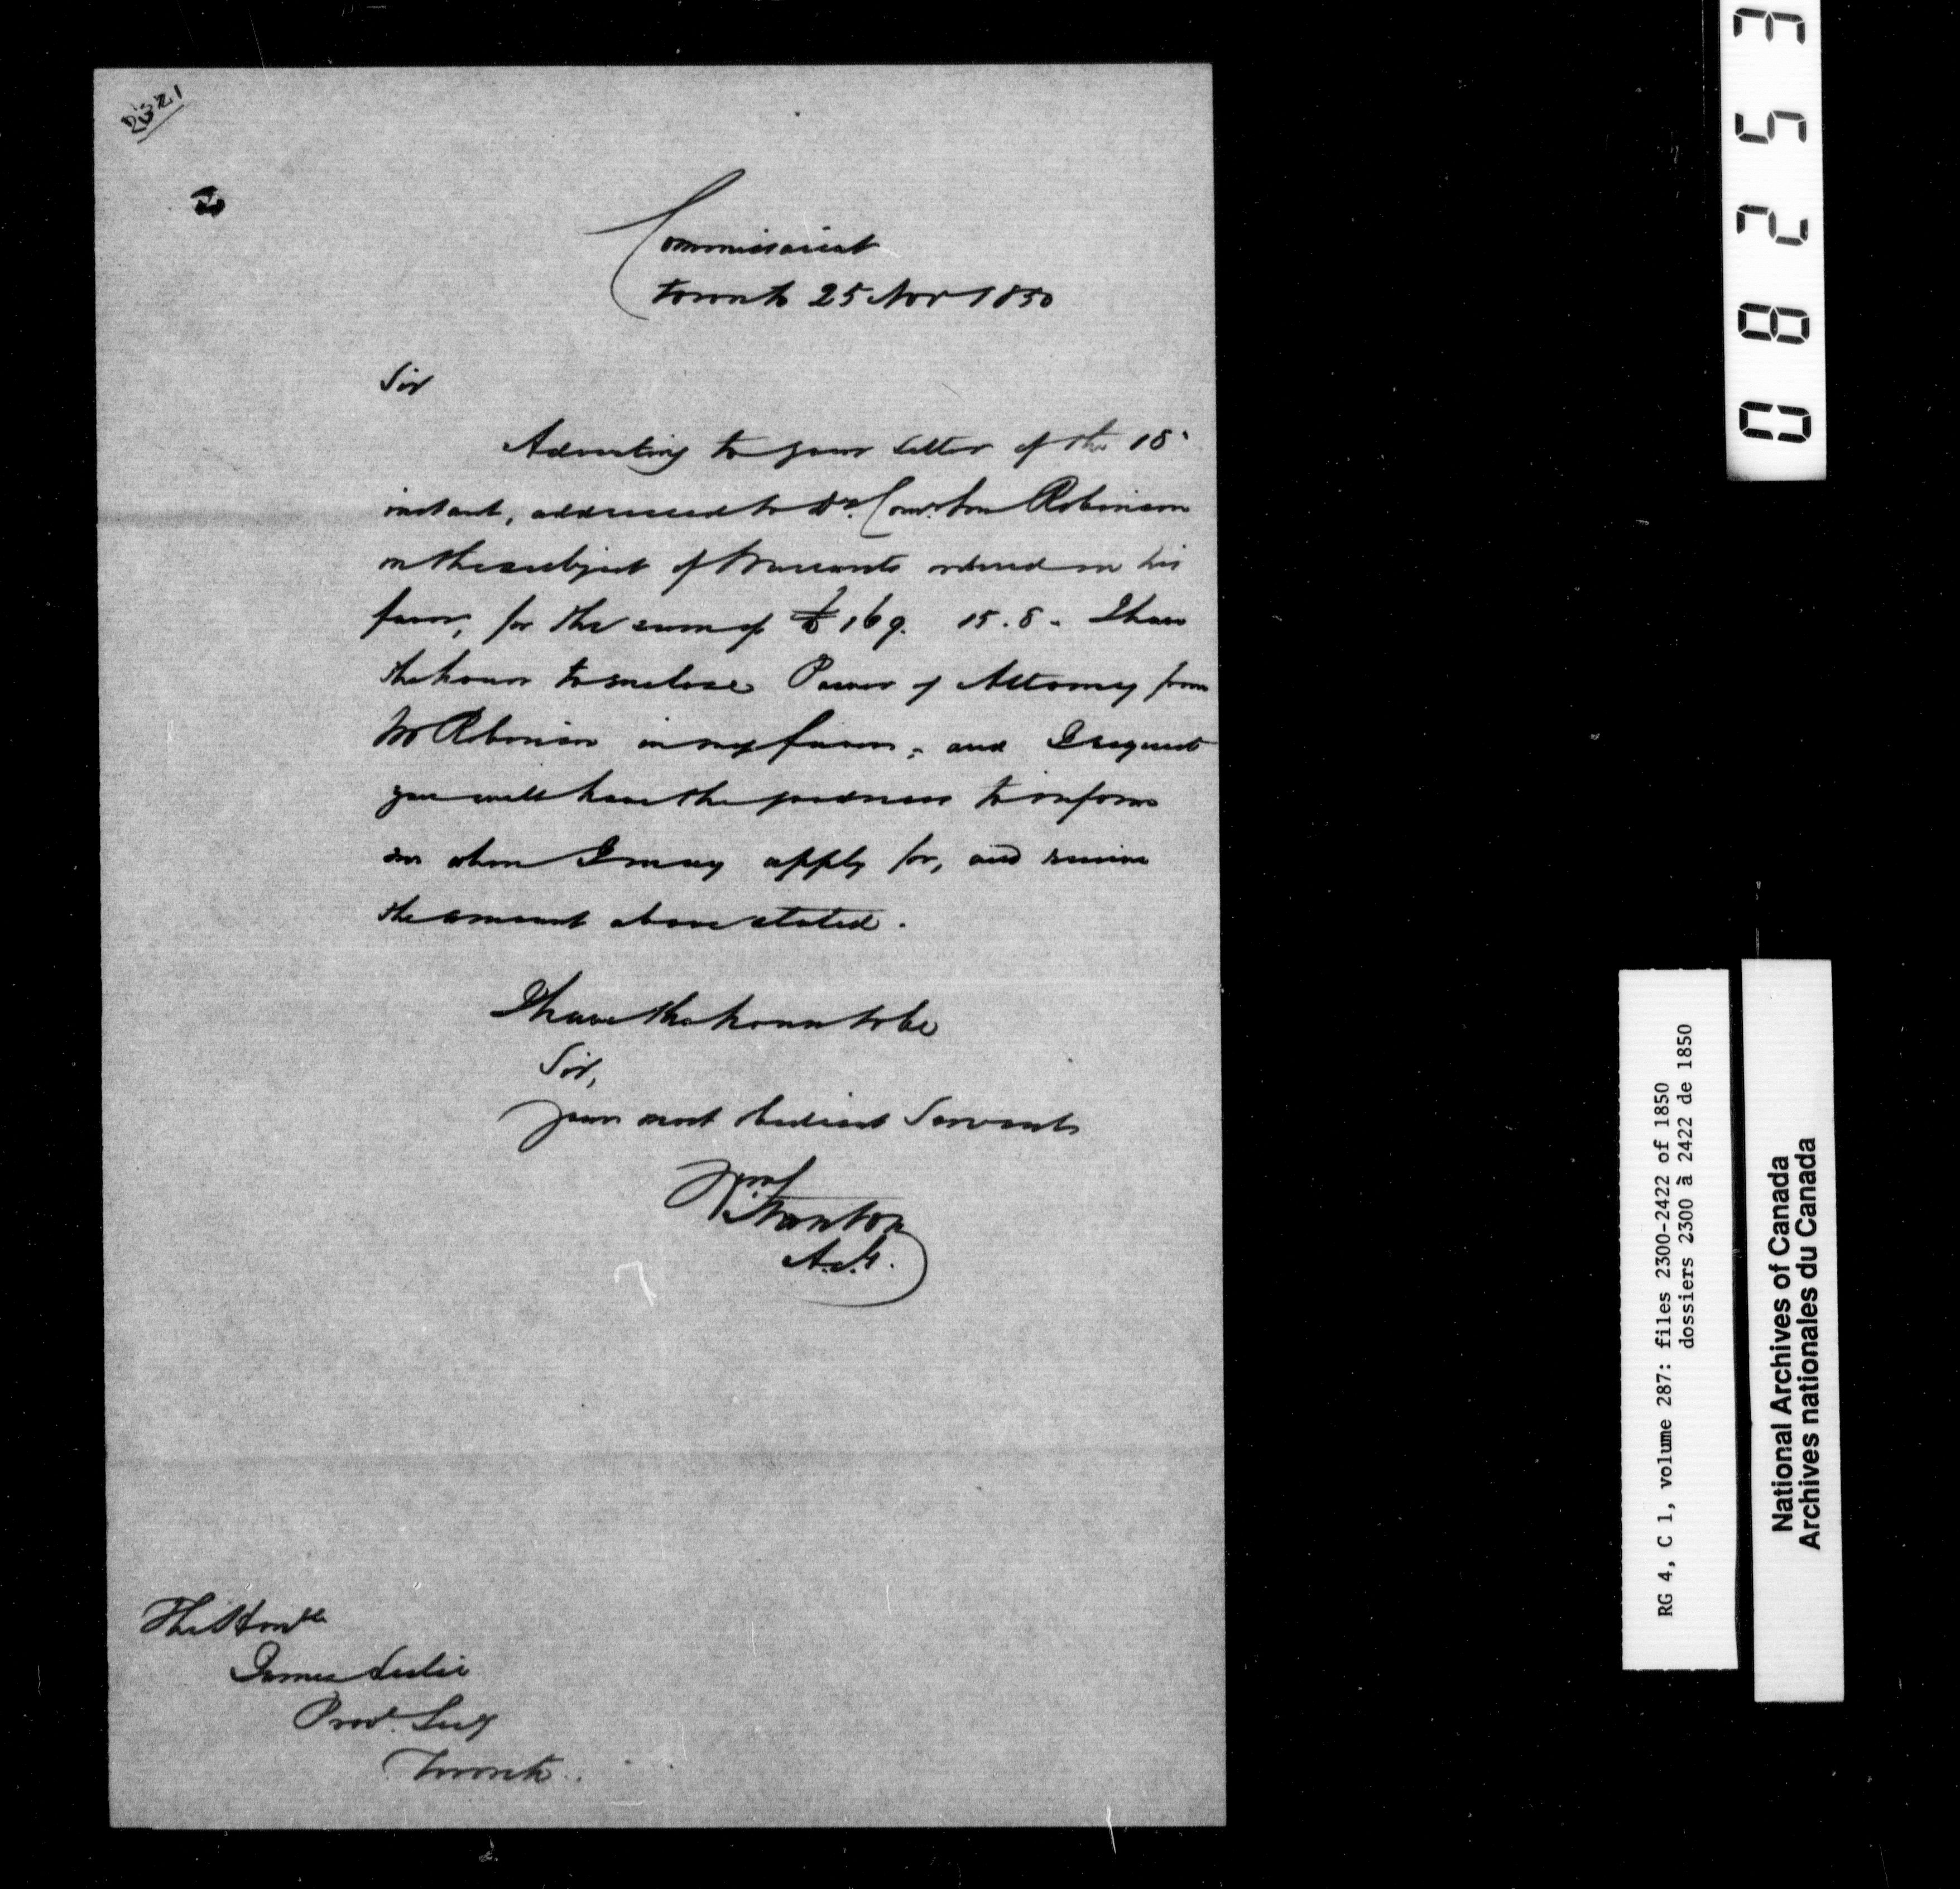 2321
Commissariat
Toronto 25 Nov 1850
Sir
Adverting to your letter of the 18
instant, addressed to Robinson
on the subject of Warrants ordered in his
favor, for the sum of £169. 15. 8. I have
the honor to enclose Power of Attorney from
Mr Robinson in my favor, and I request
you will have the goodness to inform
me when I may apply for, and receive
the amount above stated.
I have the honor to be
Sir,
Your most Obedient Servant
Wm Stanton
The Honble
James Leslie
Provl. Secy
Toronto.
08253
RG 4, C 1, volume 287: files 2300-2422 of 1850
dossiers 2300 à 2422 de 1850
National Archives of Canada
Archives nationales du Canada